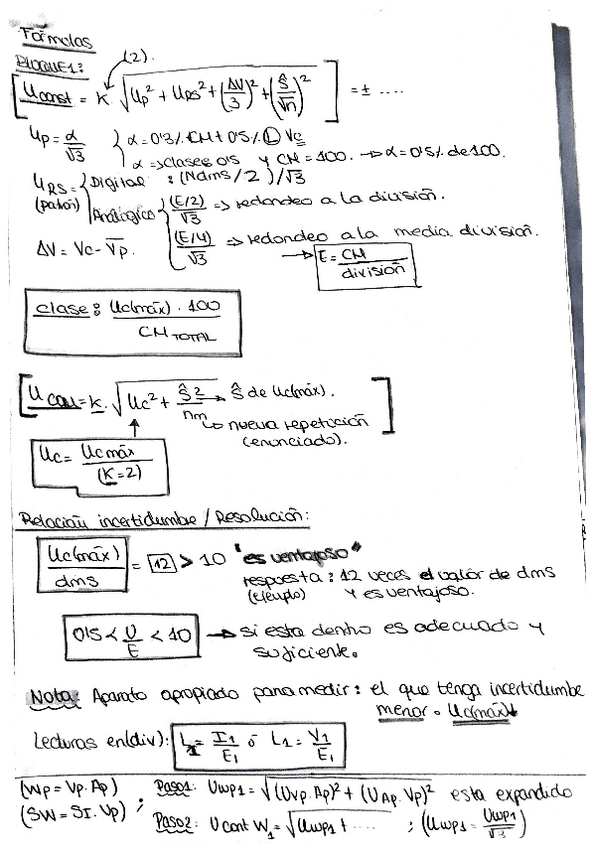 Fórmulas
BLOQUE1:
(2).
[Uconst = K · √(Up² + URS² + (ΔV/3)² + (Ŝ/√n)²)] = ± ....
Up = α/√3 { α = 0'3% CM + 0'5% Ⓛ Vc
α => clase 0'5 y CM = 100. → α = 0'5% de 100.
URS = { Digital : (Ndms/2)/√3
(patón) Analógico { (E/2)/√3 => redondeo a la división.
(E/4)/√3 => redondeo a la media división.
ΔV = Vc - V̄p.
→ E = CM/división
clase: Uc(máx) · 100 / CM TOTAL
[U com = k · √(Uc² + Ŝ²/nm)] → Ŝ de Uc(máx).
↳ nueva repetición
(enunciado).
Uc = Ucmáx/(K=2)
Relación incertidumbre / Resolución:
Uc(máx)/dms = 12 > 10 "es ventajoso"
respuesta : 12 veces el valor de dms
(ejemplo) y es ventajoso.
0'5 < U/E < 10 → si esta dentro es adecuado y
suficiente.
Nota: Aparato apropiado para medir : el que tenga incertidumbre
menor. Uc(máx)↓
Lecturas en(div): L1 = I1/E1 ó L1 = V1/E1
(Wp = Vp · Ap) ; Paso1: Uwp1 = √((Uvp · Ap)² + (UAp · Vp)²) esta expandido
(SW = SI · Vp) Paso2: U cont W1 = √(Uwp1 + ....) ; (Uwp1 = Uwp1/√3)